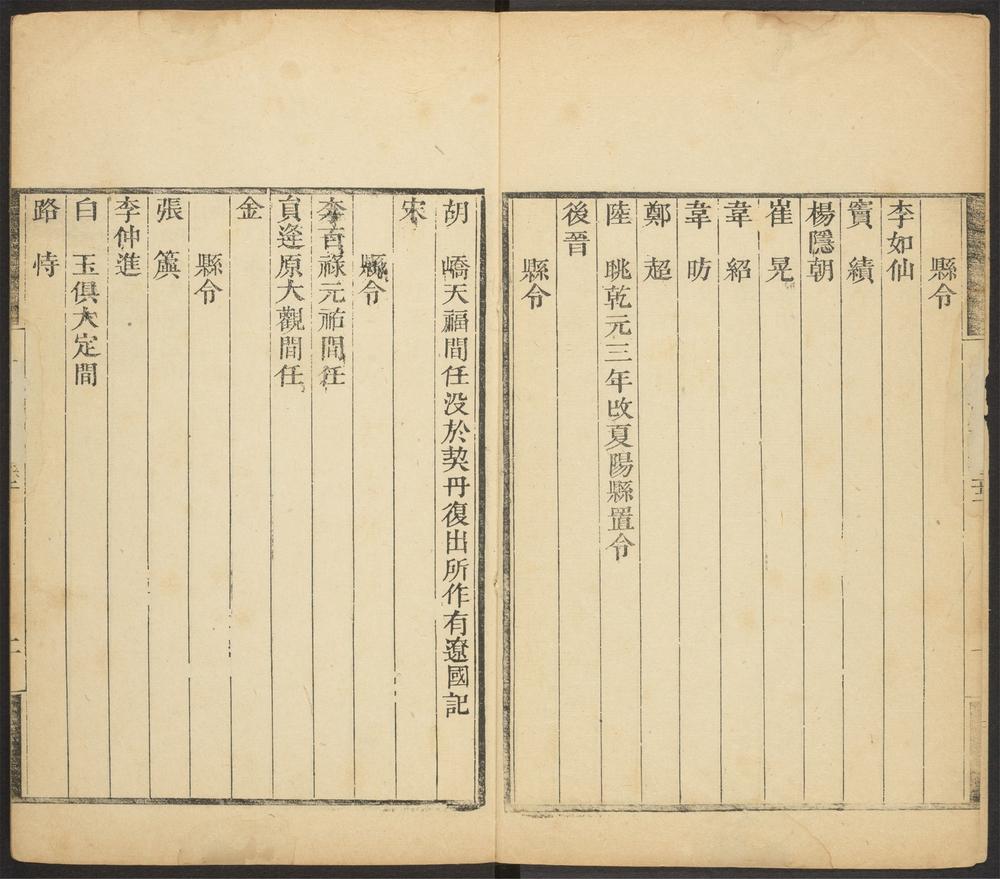 縣令
李如仙
竇績
楊隱朝
崔晃
韋紹
韋昉
鄭超
陸眺乾元三年改夏陽縣置令
後晉
縣令
胡嶠天福間任没於契丹復出所作有遼國記
宋
縣令
李百祿元祐間任
貟逢原大觀間任
金
縣令
張簴
李伸進
白玉俱大定間
路恃